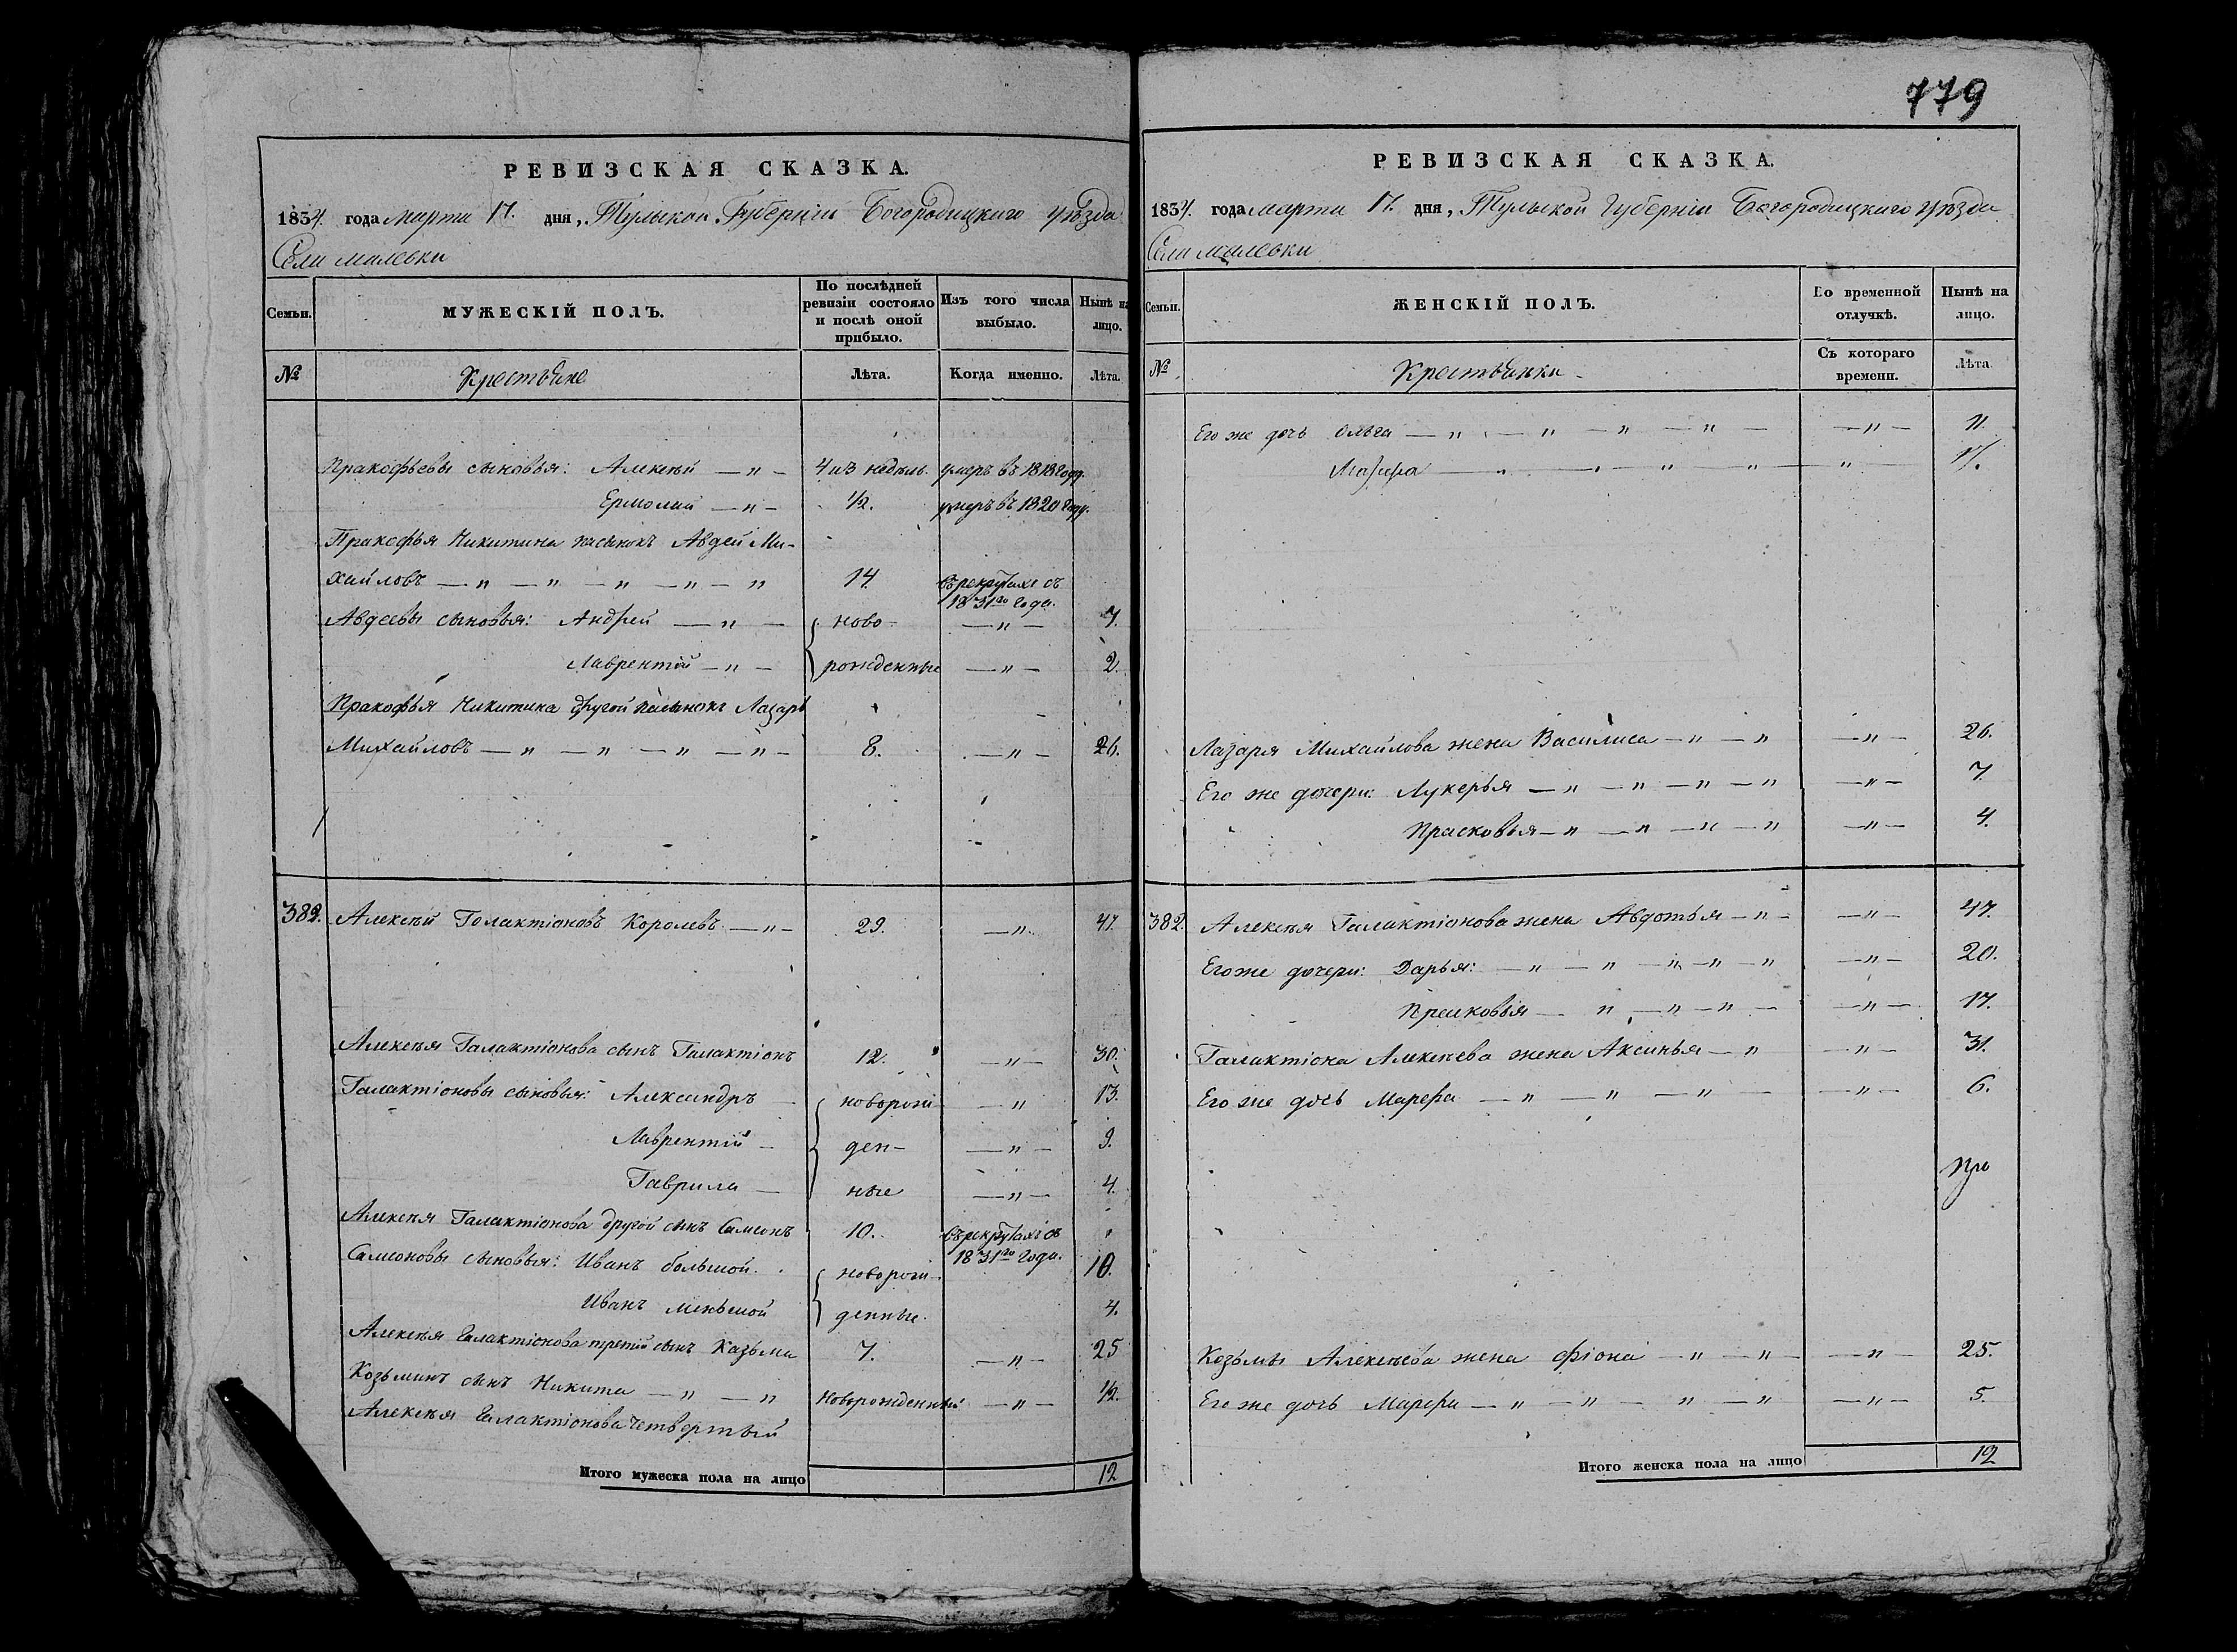 РЕВИЗСКАЯ СКАЗКА.
1834. года марта 17. дня, Тульской Губерніи Богородицкаго уѣзда
Села малевки
Семьи.
МУЖЕСКІЙ ПОЛЪ.
По послѣдней ревизіи состояло и послѣ оной прибыло.
Изъ того числа выбыло.
Нынѣ на лицо.
№
Крестьяне
Лѣта.
Когда именно.
Лѣта.
Пракофьевы сыновья: Алексѣй — „ — 4 из недѣль. умеръ въ 1818 году.
Ермолай — „ — ½. умеръ въ 1820 году.
Пракофья Никитина пасынокъ Авдей Ми-
хайловъ — „ — „ — „ — „ — „ 14. въ рекрутахъ съ 1831го года.
Авдеевы сыновья: Андрей — „ — ново- — „ — 7.
Лаврентій — „ — рожденные — „ — 2.
Пракофья Никитина другой пасынокъ Лазарь
Михайловъ — „ — „ — „ — „ — 8. — „ — 26.
382. Алексѣй Голактіоновъ Королевъ — „ — 29. — „ 47.
Алексѣя Галактіонова сынъ Галактіонъ 12. — „ — 30.
Галактіоновы сыновья: Александръ — новорож- — „ 13.
Лаврентій — ден- — „ — 9.
Гаврила — ные — „ — 4.
Алексѣя Галактіонова другой сынъ Самсонъ 10. въ рекрутахъ съ 1831го года.
Самсоновы сыновья: Иванъ большой. новорож- 10.
Иванъ меньшой денные. 4.
Алексѣя Галактіонова третій сынъ Казьма 7. — „ — 25
Козьминъ сынъ Никита — „ — „ Новорожденный — „ — ½.
Алексѣя Галактіонова четвертый
Итого мужеска пола на лицо 12
779
РЕВИЗСКАЯ СКАЗКА.
1834. года марта 17. дня, Тульской Губерніи Богородицкаго уѣзда
Села малевки
Семьи.
ЖЕНСКІЙ ПОЛЪ.
Во временной отлучкѣ.
Нынѣ на лицо.
№
Крестьянки
Съ котораго времени.
Лѣта.
Его же дочь Ольга — „ — „ — „ — „ — — „ — 11.
— „ — „ — „ — „ — „
Лазаря Михайлова жена Василиса — „ — „ — „ — 26.
Его же дочери: Лукерья — „ — „ — „ — „ — „ — 7.
Прасковья — „ — „ — „ — „ — „ — 4.
382. Алексѣя Галактіонова жена Авдотья — „ — — „ — 47.
Его же дочери: Дарья: — „ — „ — „ — „ — „ — „ — 20.
Прасковья — „ — „ — „ — — „ — 17.
Галактіона Алексѣева жена Аксинья — „ — „ — 31.
Его же дочь Марфа — „ — „ — „ — — „ — 6.
Козьмы Алексѣева жена Фіона — „ — „ — — „ — 25.
Его же дочь Марфа — „ — „ — „ — „ — „ — 5.
Итого женска пола на лицо 12